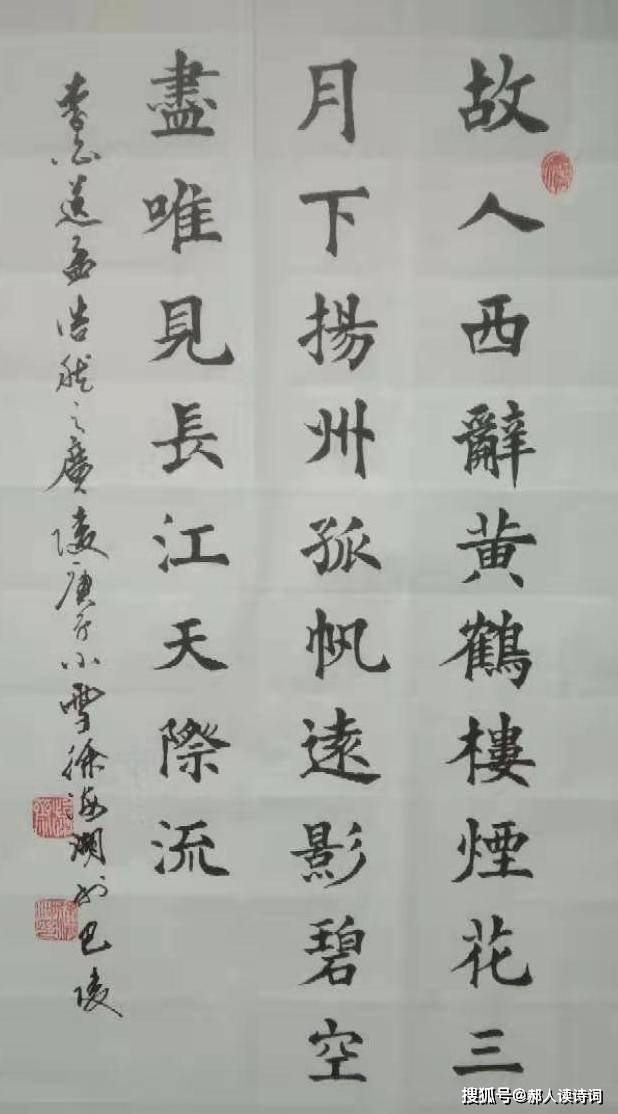 故人西辭黄鶴樓煙花三
月下揚州孤帆遠影碧空
盡唯見長江天際流
李白送孟浩然之廣陵庚子小雪徐海潮於巴陵
搜狐号@郝人读诗词